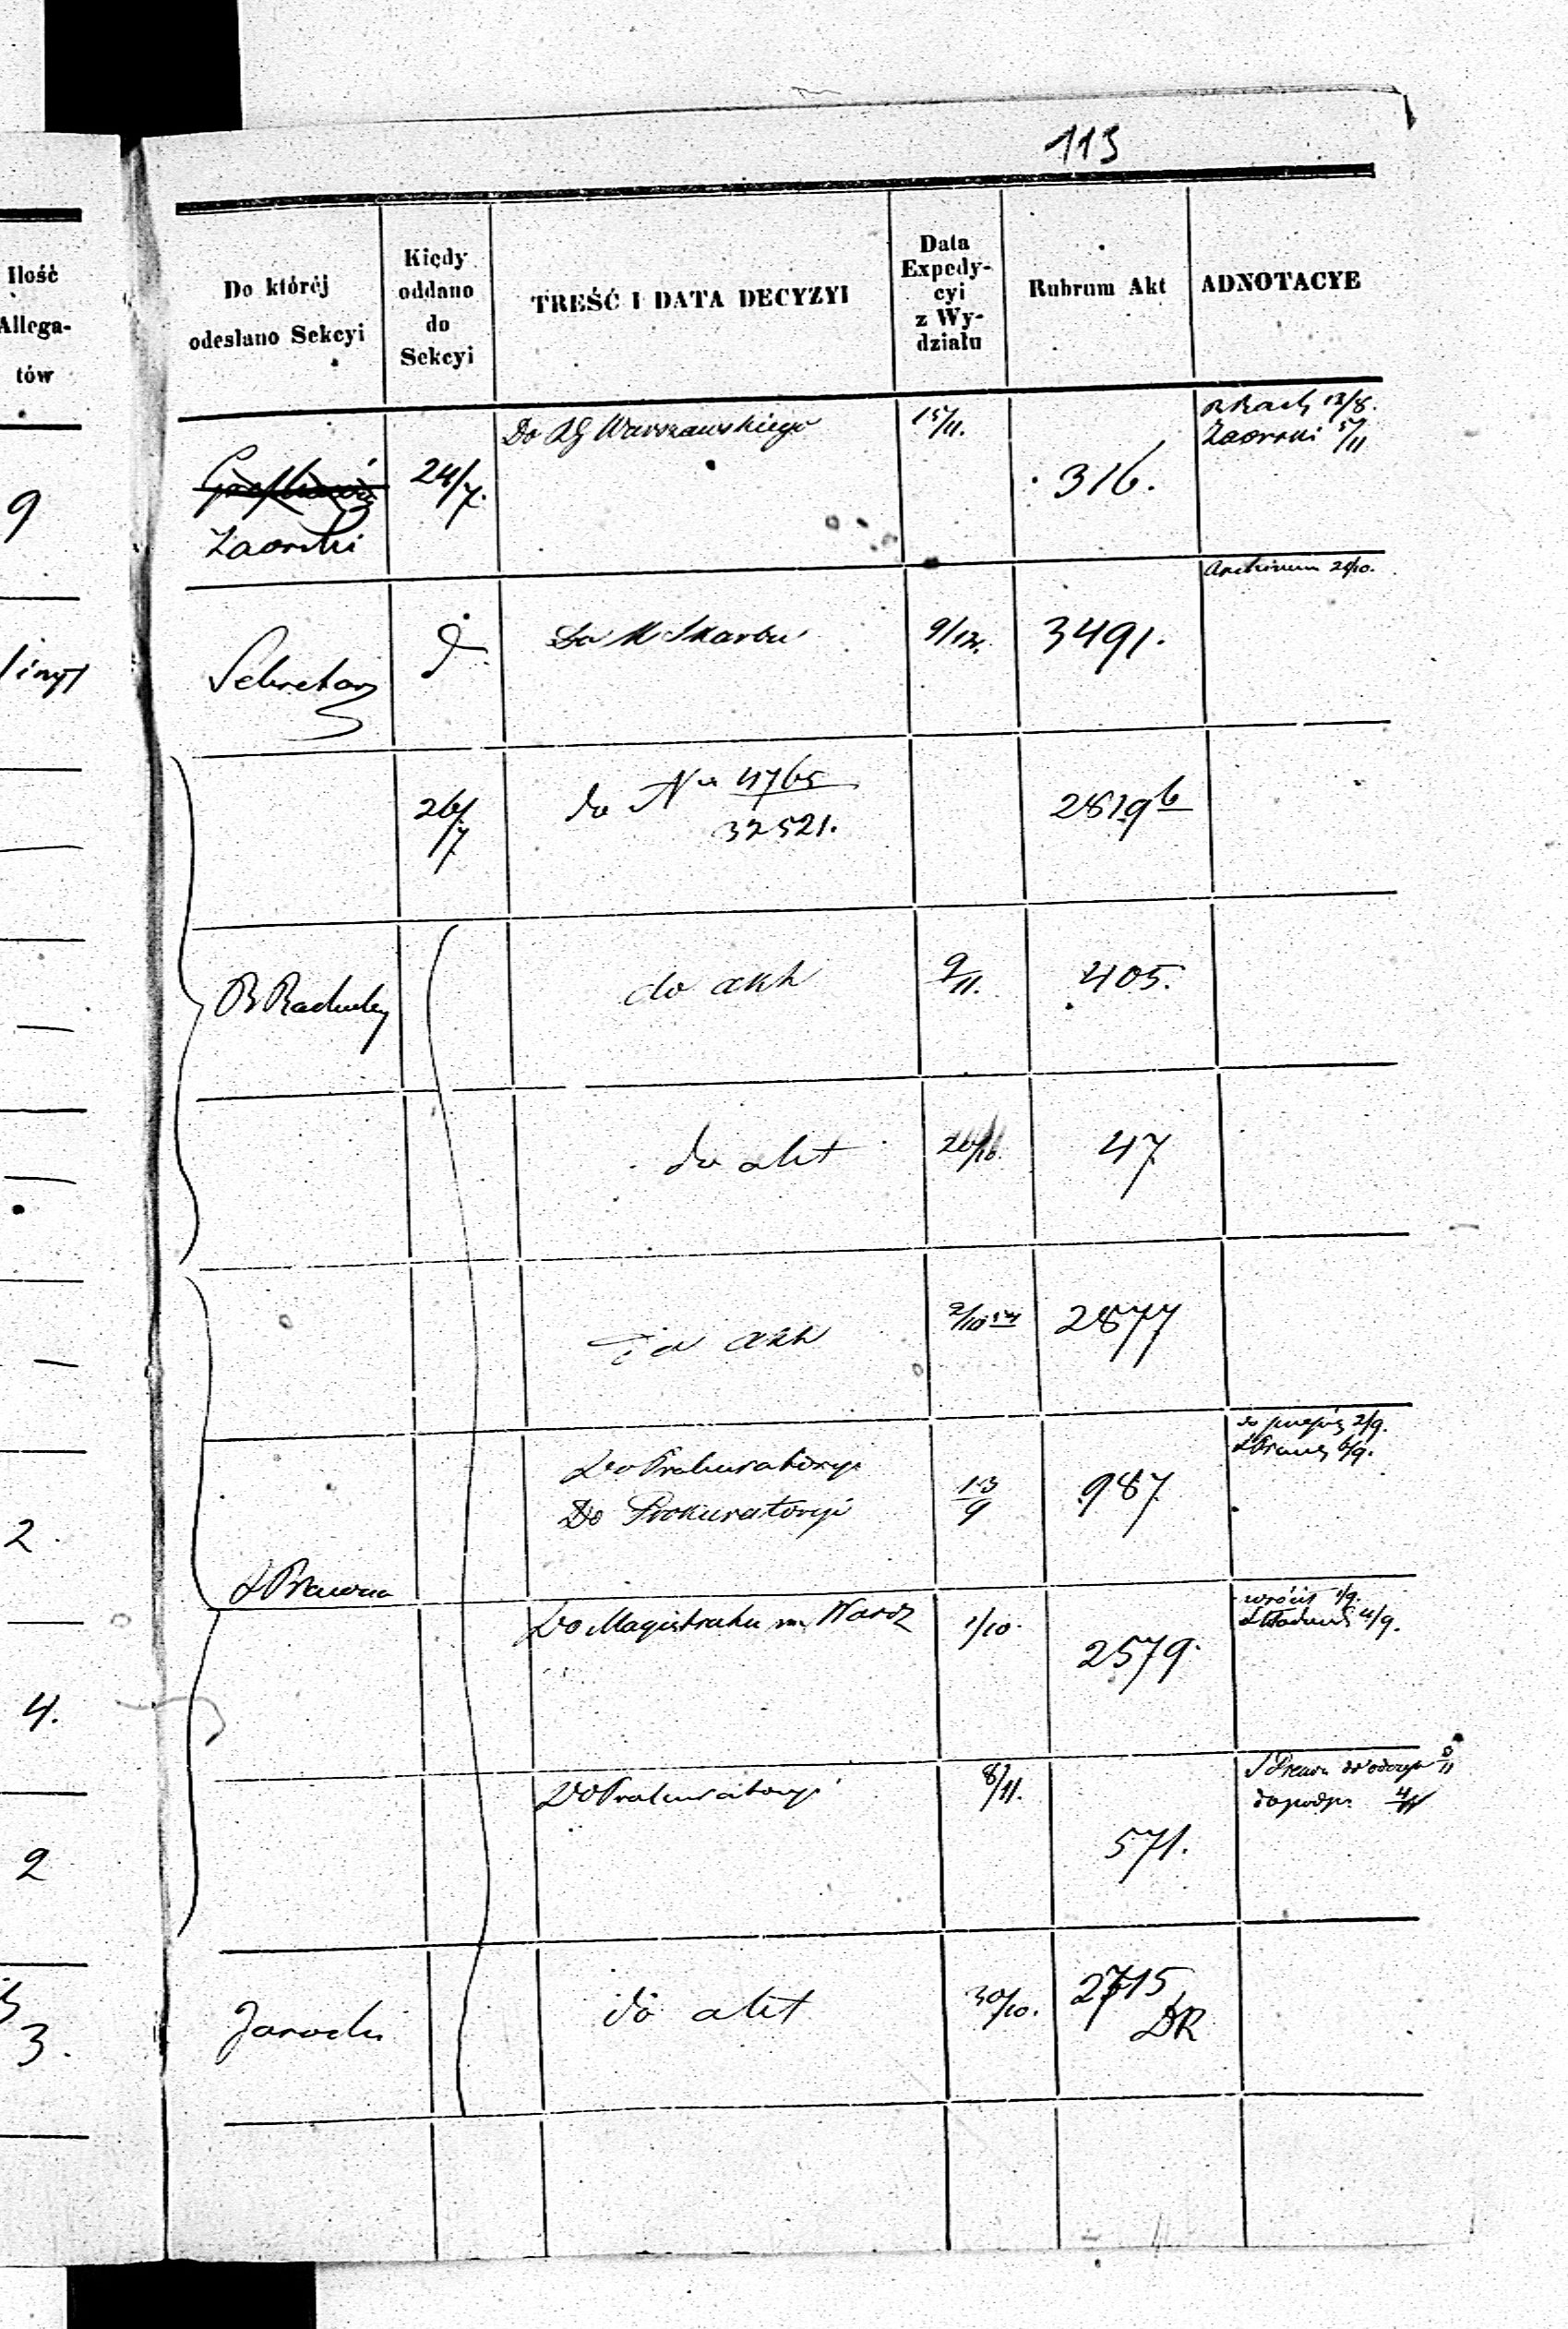 113
Ilość
Allega-
tów
Do którėj
odesłano Sekcyi
Kiędy
oddano
do
Sekcyi
TREŚĆ I DATA DECYZYI
Data
Expedy-
cyi
z Wy-
działu
Rubrum Akt
ADNOTACYE
9
Zaorski
24/7.
Do RG Warszawskiego
15/11.
316.
12/8.
Zaorski 5/11
Sekretarz
Do K Skarbu
9/12.
3491.
Archiwum
26/7
do Nu 4765
32521.
2819b
B Rachuby
do akt
9/11.
405.
do akt
47
do akt
2877
2
S Prawna
Do Prokuratoryi
Do Prokuratoryi
13/9
987
2/9.
6/9.
4.
Do Magistratu m. Warsz
1/10.
2579.
wrócił 1/9.
4/9.
2
Do Prokuratoryi
8/11.
571.
3.
Jarocki
do akt
30/10.
2715
DR